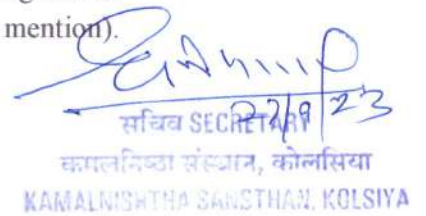 mention).
27/9/23
सचिव SECRETARY
कमलनिष्ठा संस्थान, कोलसिया
KAMALNISHTHA SANSTHAN, KOLSIYA